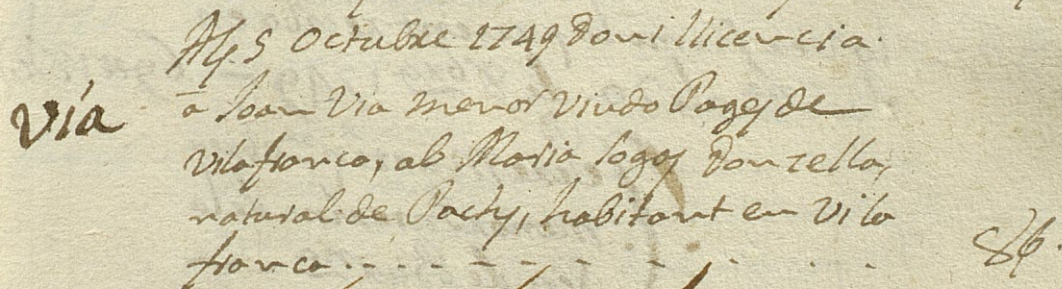 Als 5 Octubre 1749 doni llicencia
Via
a Joan Via menor viudo Pages de
Vilafranca, ab Maria Soges donzella,
natural de Pachs, habitant en Vila
franca . . . . . . . . . . . 8 ꝭ 6.